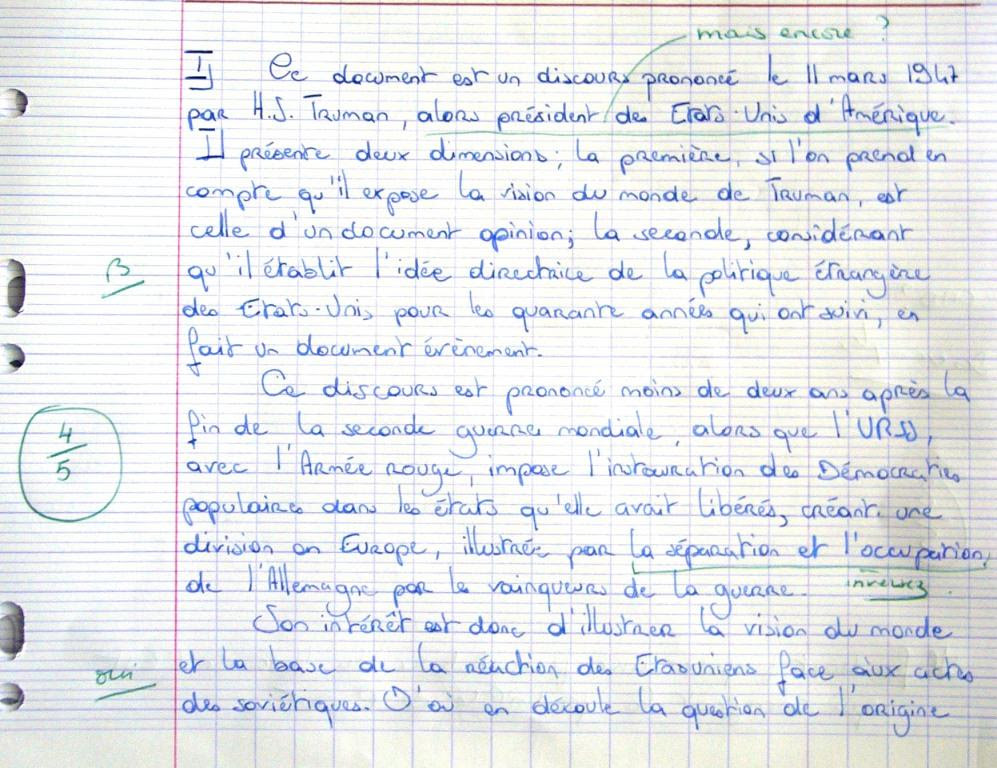 mais encore ?
I) Ce document est un discours prononcé le 11 mars 1947
par H.S. Truman, alors président des Etats-Unis d'Amérique.
Il présente deux dimensions; la première, si l'on prend en
compte qu'il expose la vision du monde de Truman, est
celle d'un document opinion; la seconde, considérant
B qu'il établit l'idée directrice de la politique étrangère
des Etats-Unis pour les quarante années qui ont suivi, en
fait un document évènement.
Ce discours est prononcé moins de deux ans après la
4/5 fin de la seconde guerre mondiale, alors que l'URSS,
avec l'Armée rouge, impose l'instauration des Démocraties
populaires dans les états qu'elle avait libérés, créant une
division en Europe, illustrée par la séparation et l'occupation,
de l'Allemagne par les vainqueurs de la guerre. inversez.
Son intérêt est donc d'illustrer la vision du monde
oui et la base de la réaction des Etasuniens face aux actes
des soviétiques. D'où en découle la question de l'origine